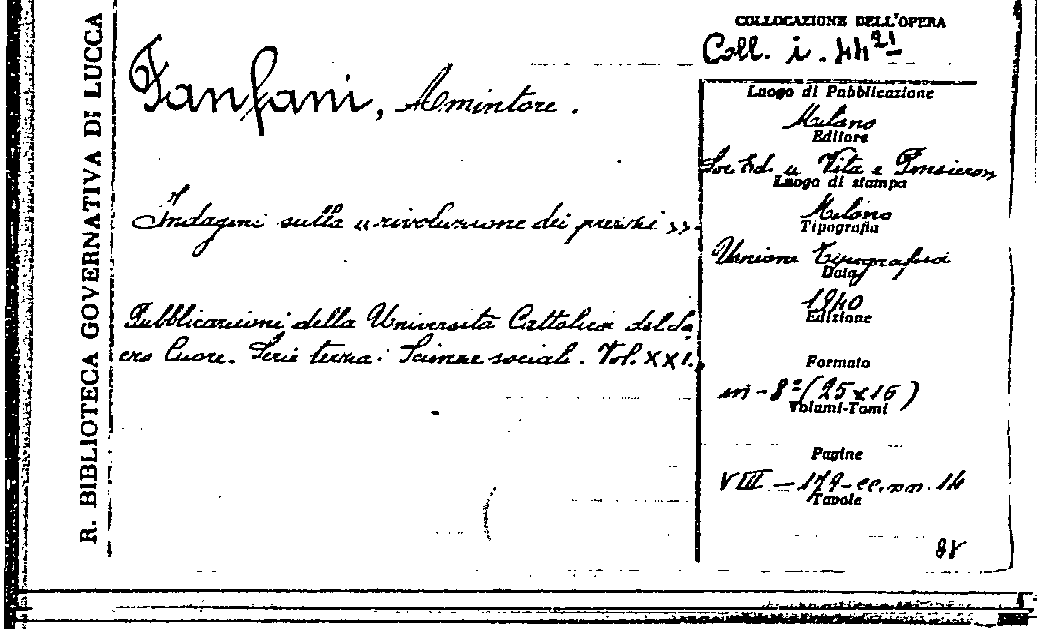 R. BIBLIOTECA GOVERNATIVA DI LUCCA
Fanfani, Amintore.
Indagini sulla «rivoluzione dei prezzi».
Pubblicazioni della Università Cattolica del Sa,
cro Cuore. Serie terza: Scienze sociali. Vol. XXI.
COLLOCAZIONE DELL'OPERA
Coll. i. 44 21
Luogo di Pubblicazione
Milano
Editore
Soc. Ed. « Vita e Pensiero»
Luogo di stampa
Milano
Tipografia
Unione tipografica
Data
1940
Edizione
Formato
in-8º (25x16)
Volumi-Tomi
Pagine
VIII - 179 - cc. nn. 14
Tavole